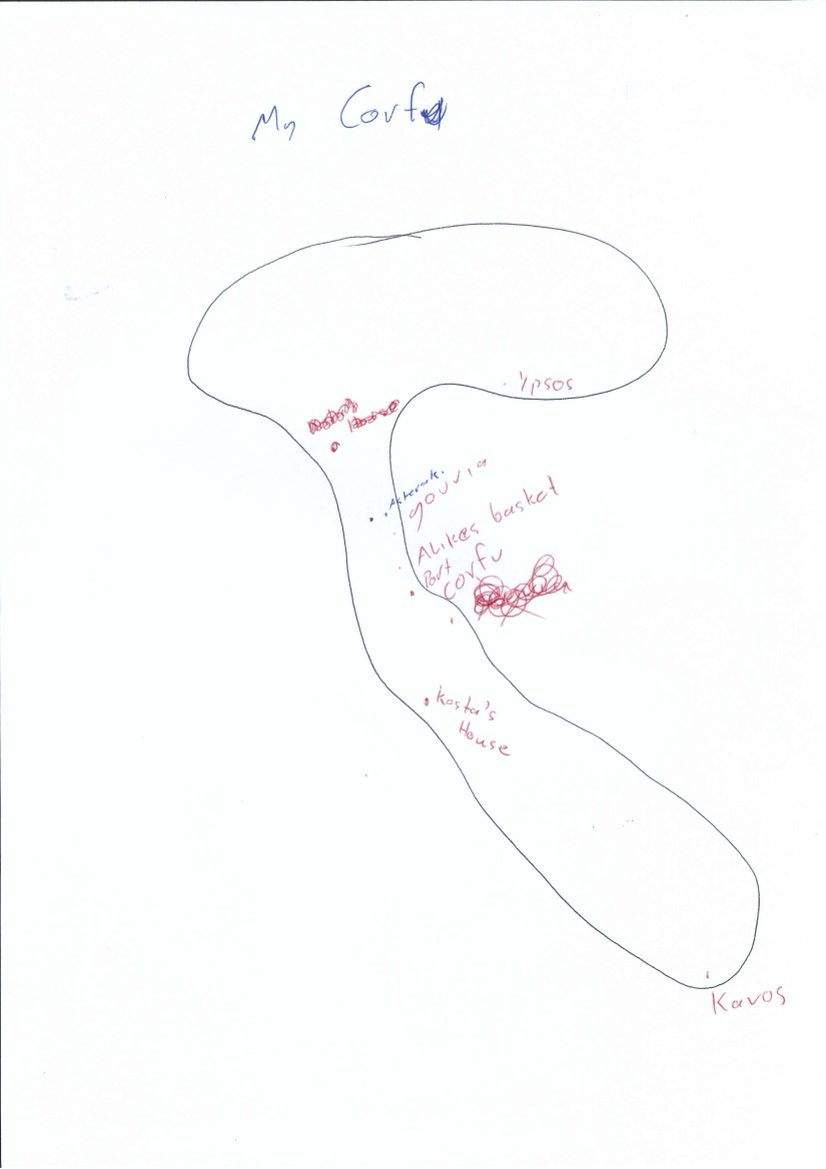 My Corfu
Ypsos
gouvia
ALikes basket
Port
Corfu
Kosta's
House
Kavos